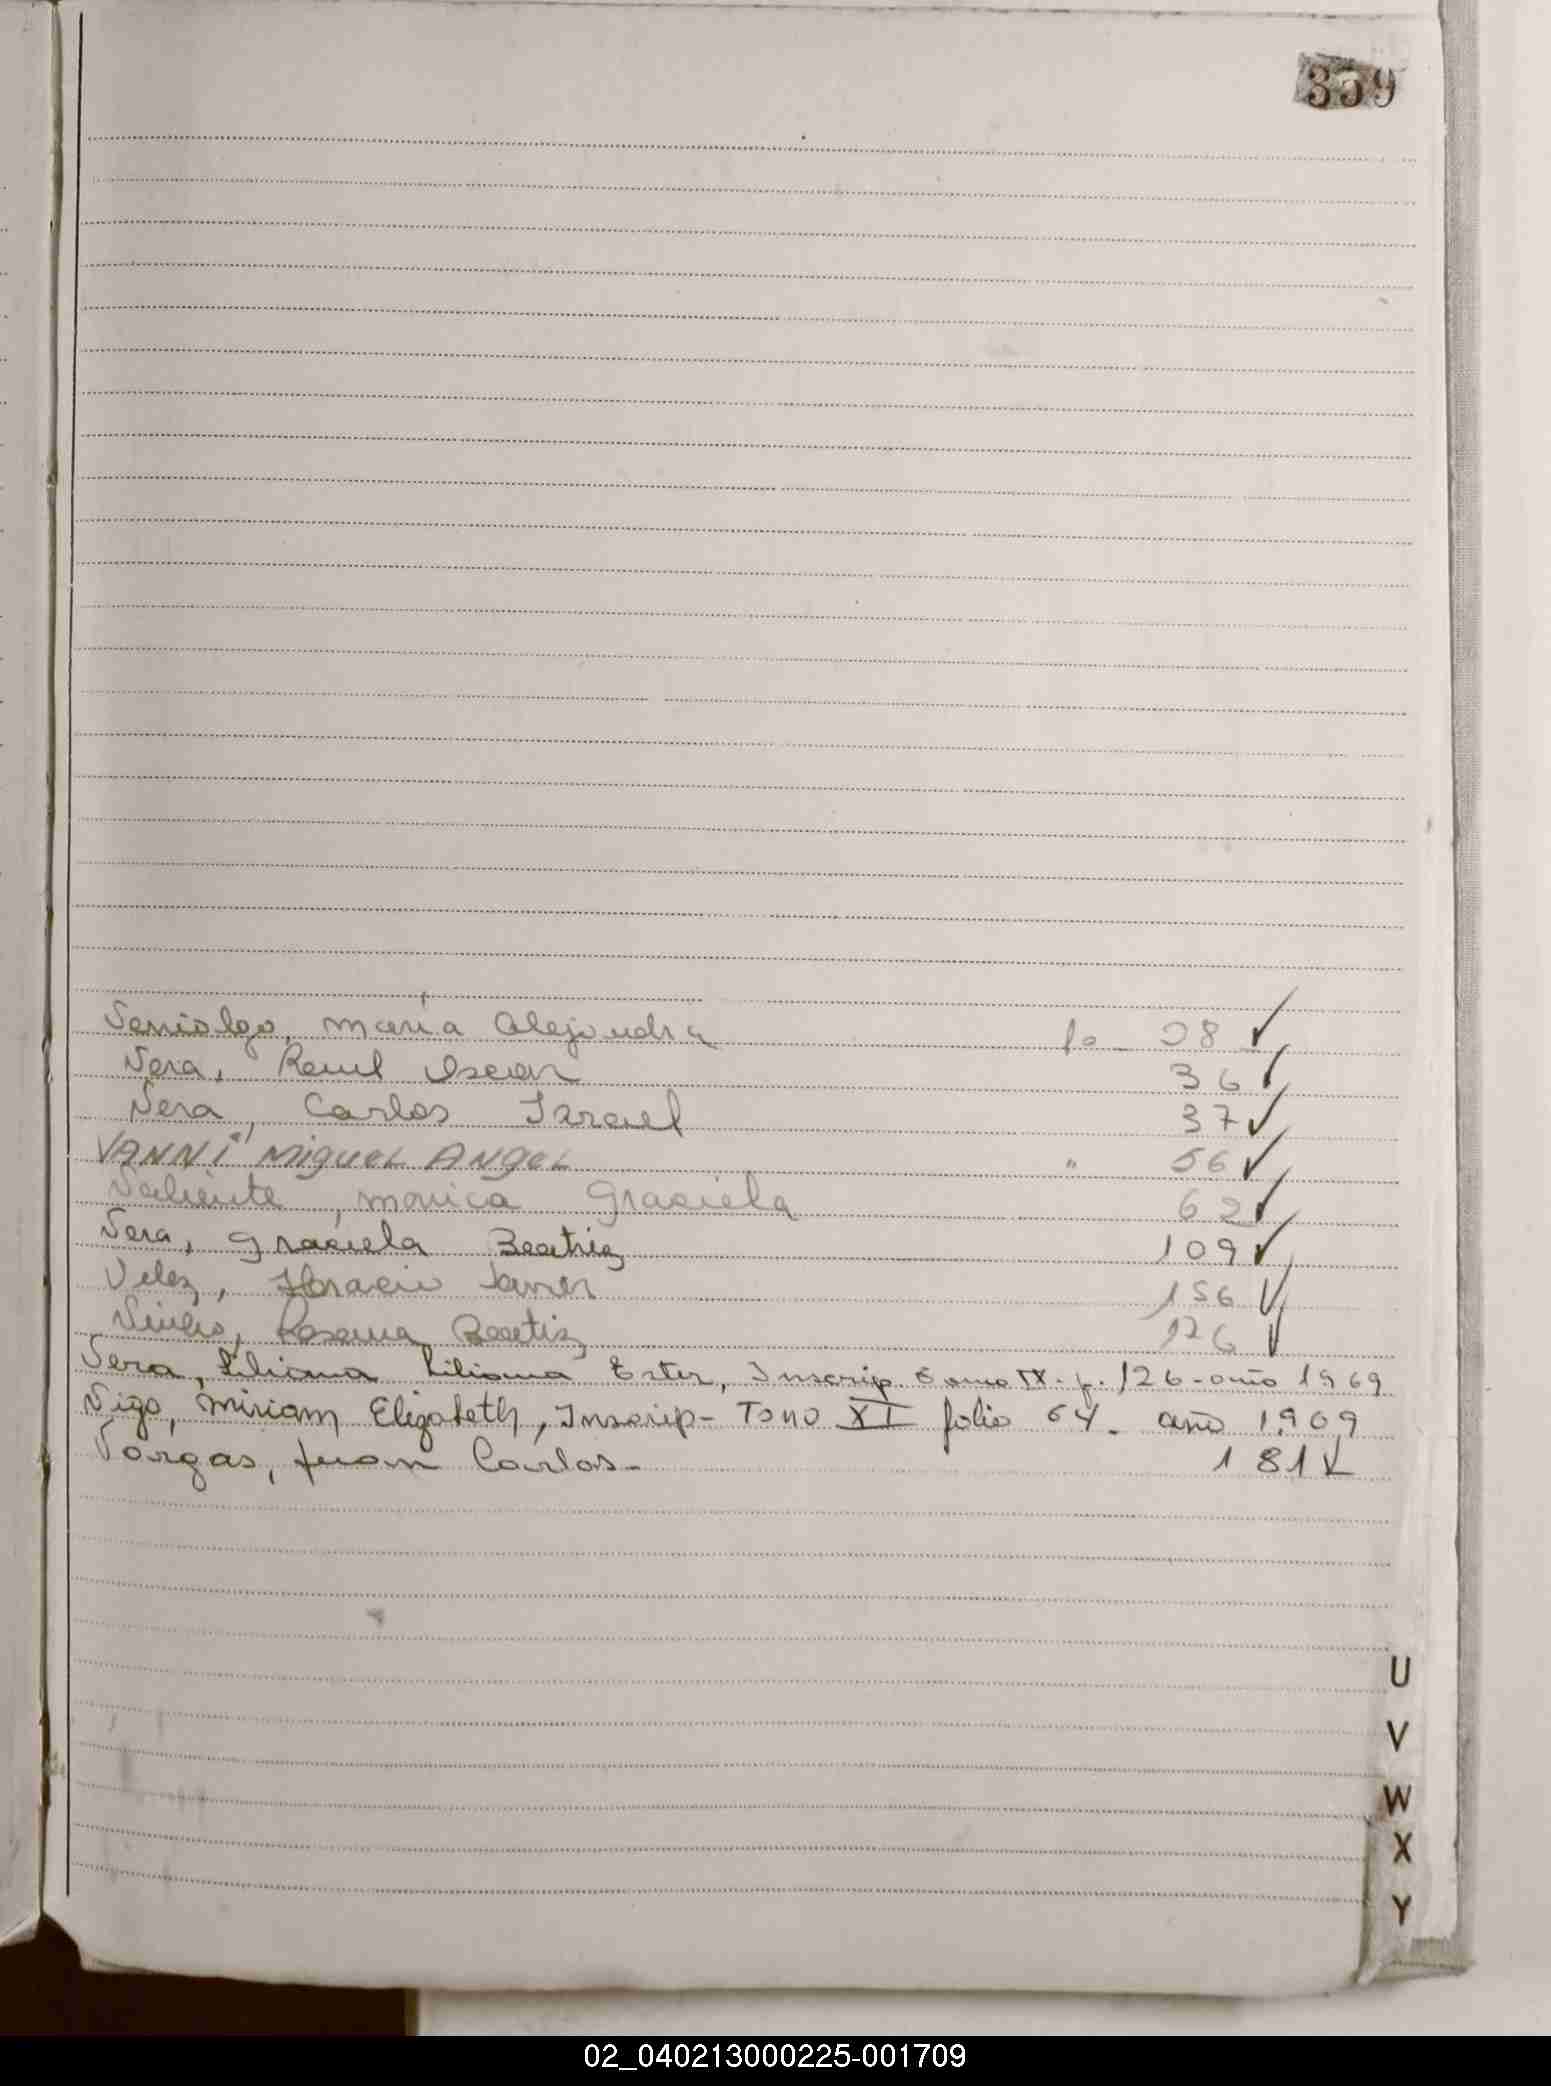 359
María Alejandra fo - 28 ✓
Vera, Raul Oscar 36 ✓
Vera, Carlos Israel 37 ✓
VANNI MIGUEL ANGEL " 56 ✓
Valiente, Monica Graciela 62 ✓
Vera, Graciela Beatriz 109 ✓
Velez, Horacio Javier 156 ✓
Rosana Beatriz 126 ✓
Vera, Liliana Liliana Ester, Inscrip. Tomo IX. f. 126 - año 1969
Vigo, Miriam Elizabeth, Inscrip - Tomo XI folio 64. año 1969
Vargas, Juan Carlos - 181 ✓
U
V
W
X
Y
02_040213000225-001709